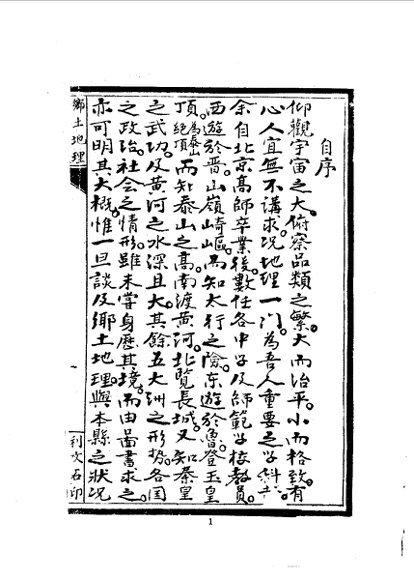 自序
仰觀宇宙之大。俯察品類之繁。大而治平。小而格致。有
心人宜無不講求。况地理一門。為吾人重要之学科哉
余自北京高師卒業後。數任各中学及師範学校教員。
西遊於晋。山嶺崎嶇。而知太行之險。东遊於魯。登玉皇
頂。為泰山絕頂而知泰山之高。南渡黄河。北覧長城。又知秦皇
之武功。及黄河之水深且大。其餘五大洲之形勢。各国
之政治社会之情形。雖未嘗身歷其境。而由啚書求之。
亦可明其大概。惟一旦談及鄉土地理與本縣之狀况
鄉土地理
利文石印
1